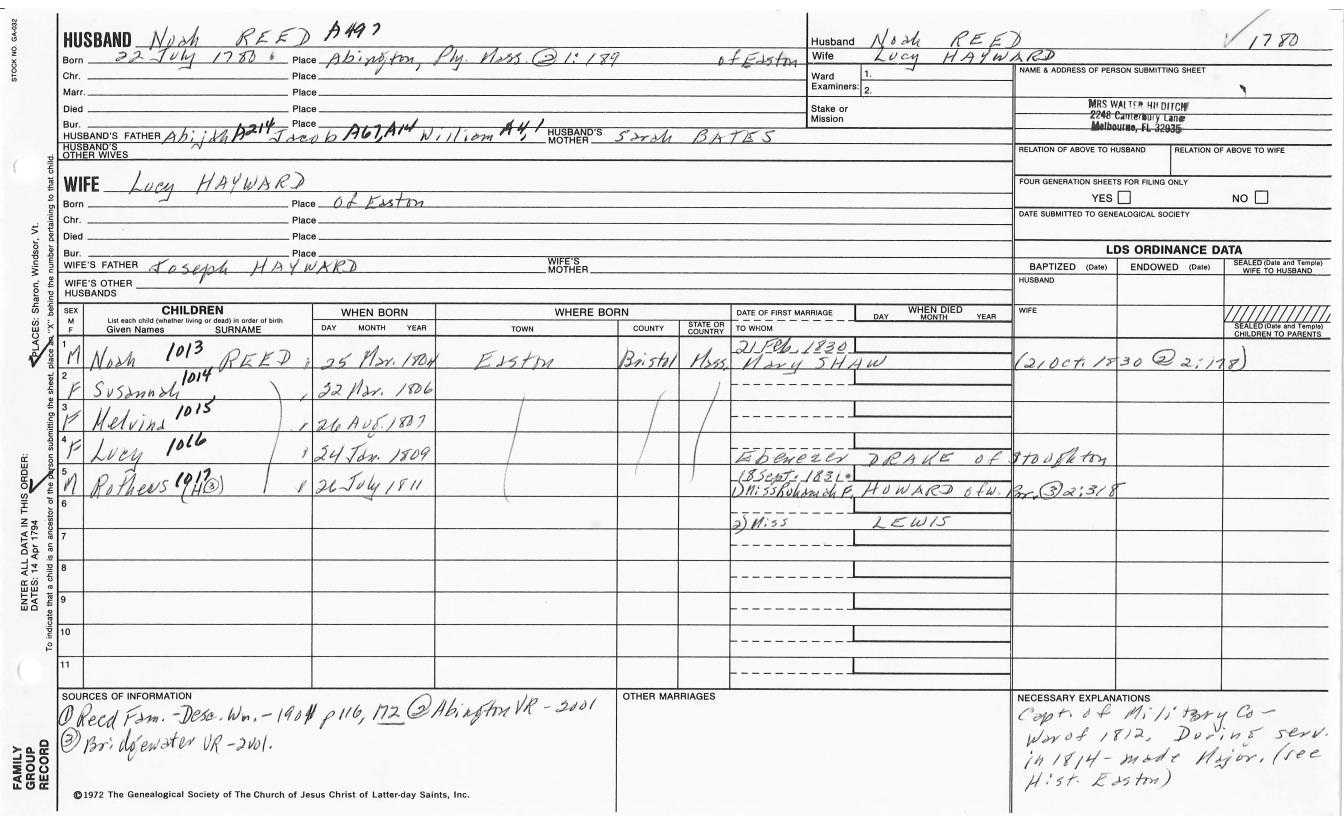 STOCK NO. GA-032
HUSBAND Noah REED A497
Born 22 July 1780 Place Abington, Ply. Mass. ② 1:189 of Easton
Chr. Place
Marr. Place
Died Place
Bur. Place
HUSBAND'S FATHER Abijah A214 Jacob A67, A14 William A4, 1 HUSBAND'S MOTHER Sarah BATES
HUSBAND'S OTHER WIVES
Husband Noah REED ✓ 1780
Wife Lucy HAYWARD
Ward Examiners: 1.
2.
Stake or Mission
NAME & ADDRESS OF PERSON SUBMITTING SHEET
MRS WALTER HILDITCH
2248 Canterbury Lane
Melbourne, FL 32935
RELATION OF ABOVE TO HUSBAND RELATION OF ABOVE TO WIFE
FOUR GENERATION SHEETS FOR FILING ONLY
YES NO
DATE SUBMITTED TO GENEALOGICAL SOCIETY
WIFE Lucy HAYWARD
Born Place of Easton
Chr. Place
Died Place
Bur. Place
WIFE'S FATHER Joseph HAYWARD WIFE'S MOTHER
WIFE'S OTHER HUSBANDS
LDS ORDINANCE DATA
BAPTIZED (Date) ENDOWED (Date) SEALED (Date and Temple) WIFE TO HUSBAND
HUSBAND
WIFE
SEALED (Date and Temple) CHILDREN TO PARENTS
SEX M F CHILDREN WHEN BORN WHERE BORN DATE OF FIRST MARRIAGE WHEN DIED
List each child (whether living or dead) in order of birth
Given Names SURNAME DAY MONTH YEAR TOWN COUNTY STATE OR COUNTRY TO WHOM DAY MONTH YEAR
1 M Noah 1013 REED 25 Mar. 1804 Easton Bristol Mass. 21 Feb. 1830 Mary SHAW (21 Oct. 1830 @ 2:178)
2 F Susannah 1014 22 Mar. 1806
3 F Melvina 1015 26 Aug. 1807
4 F Lucy 1016 24 Jan. 1809 Ebenezer DRAKE of Stoughton
5 M Rotheus 1017 (H③) 26 July 1811 18 Sept. 1831
1) Miss Ruhamah F. HOWARD of W. Br. ③ 2:318
6
2) Miss LEWIS
7
8
9
10
11
SOURCES OF INFORMATION
① Reed Fam. - Desc. Wm. - 1901 p 116, M2 ② Abington VR - 2001
③ Bridgewater VR - 2001.
©1972 The Genealogical Society of The Church of Jesus Christ of Latter-day Saints, Inc.
OTHER MARRIAGES
NECESSARY EXPLANATIONS
Capt. of Military Co -
War of 1812, During serv.
in 1814 - made Major. (see
Hist. Easton)
ENTER ALL DATA IN THIS ORDER:
DATES: 14 Apr 1794
PLACES: Sharon, Windsor, Vt.
To indicate that a child is an ancestor of the person submitting the sheet, place an "X" behind the number pertaining to that child.
FAMILY GROUP RECORD